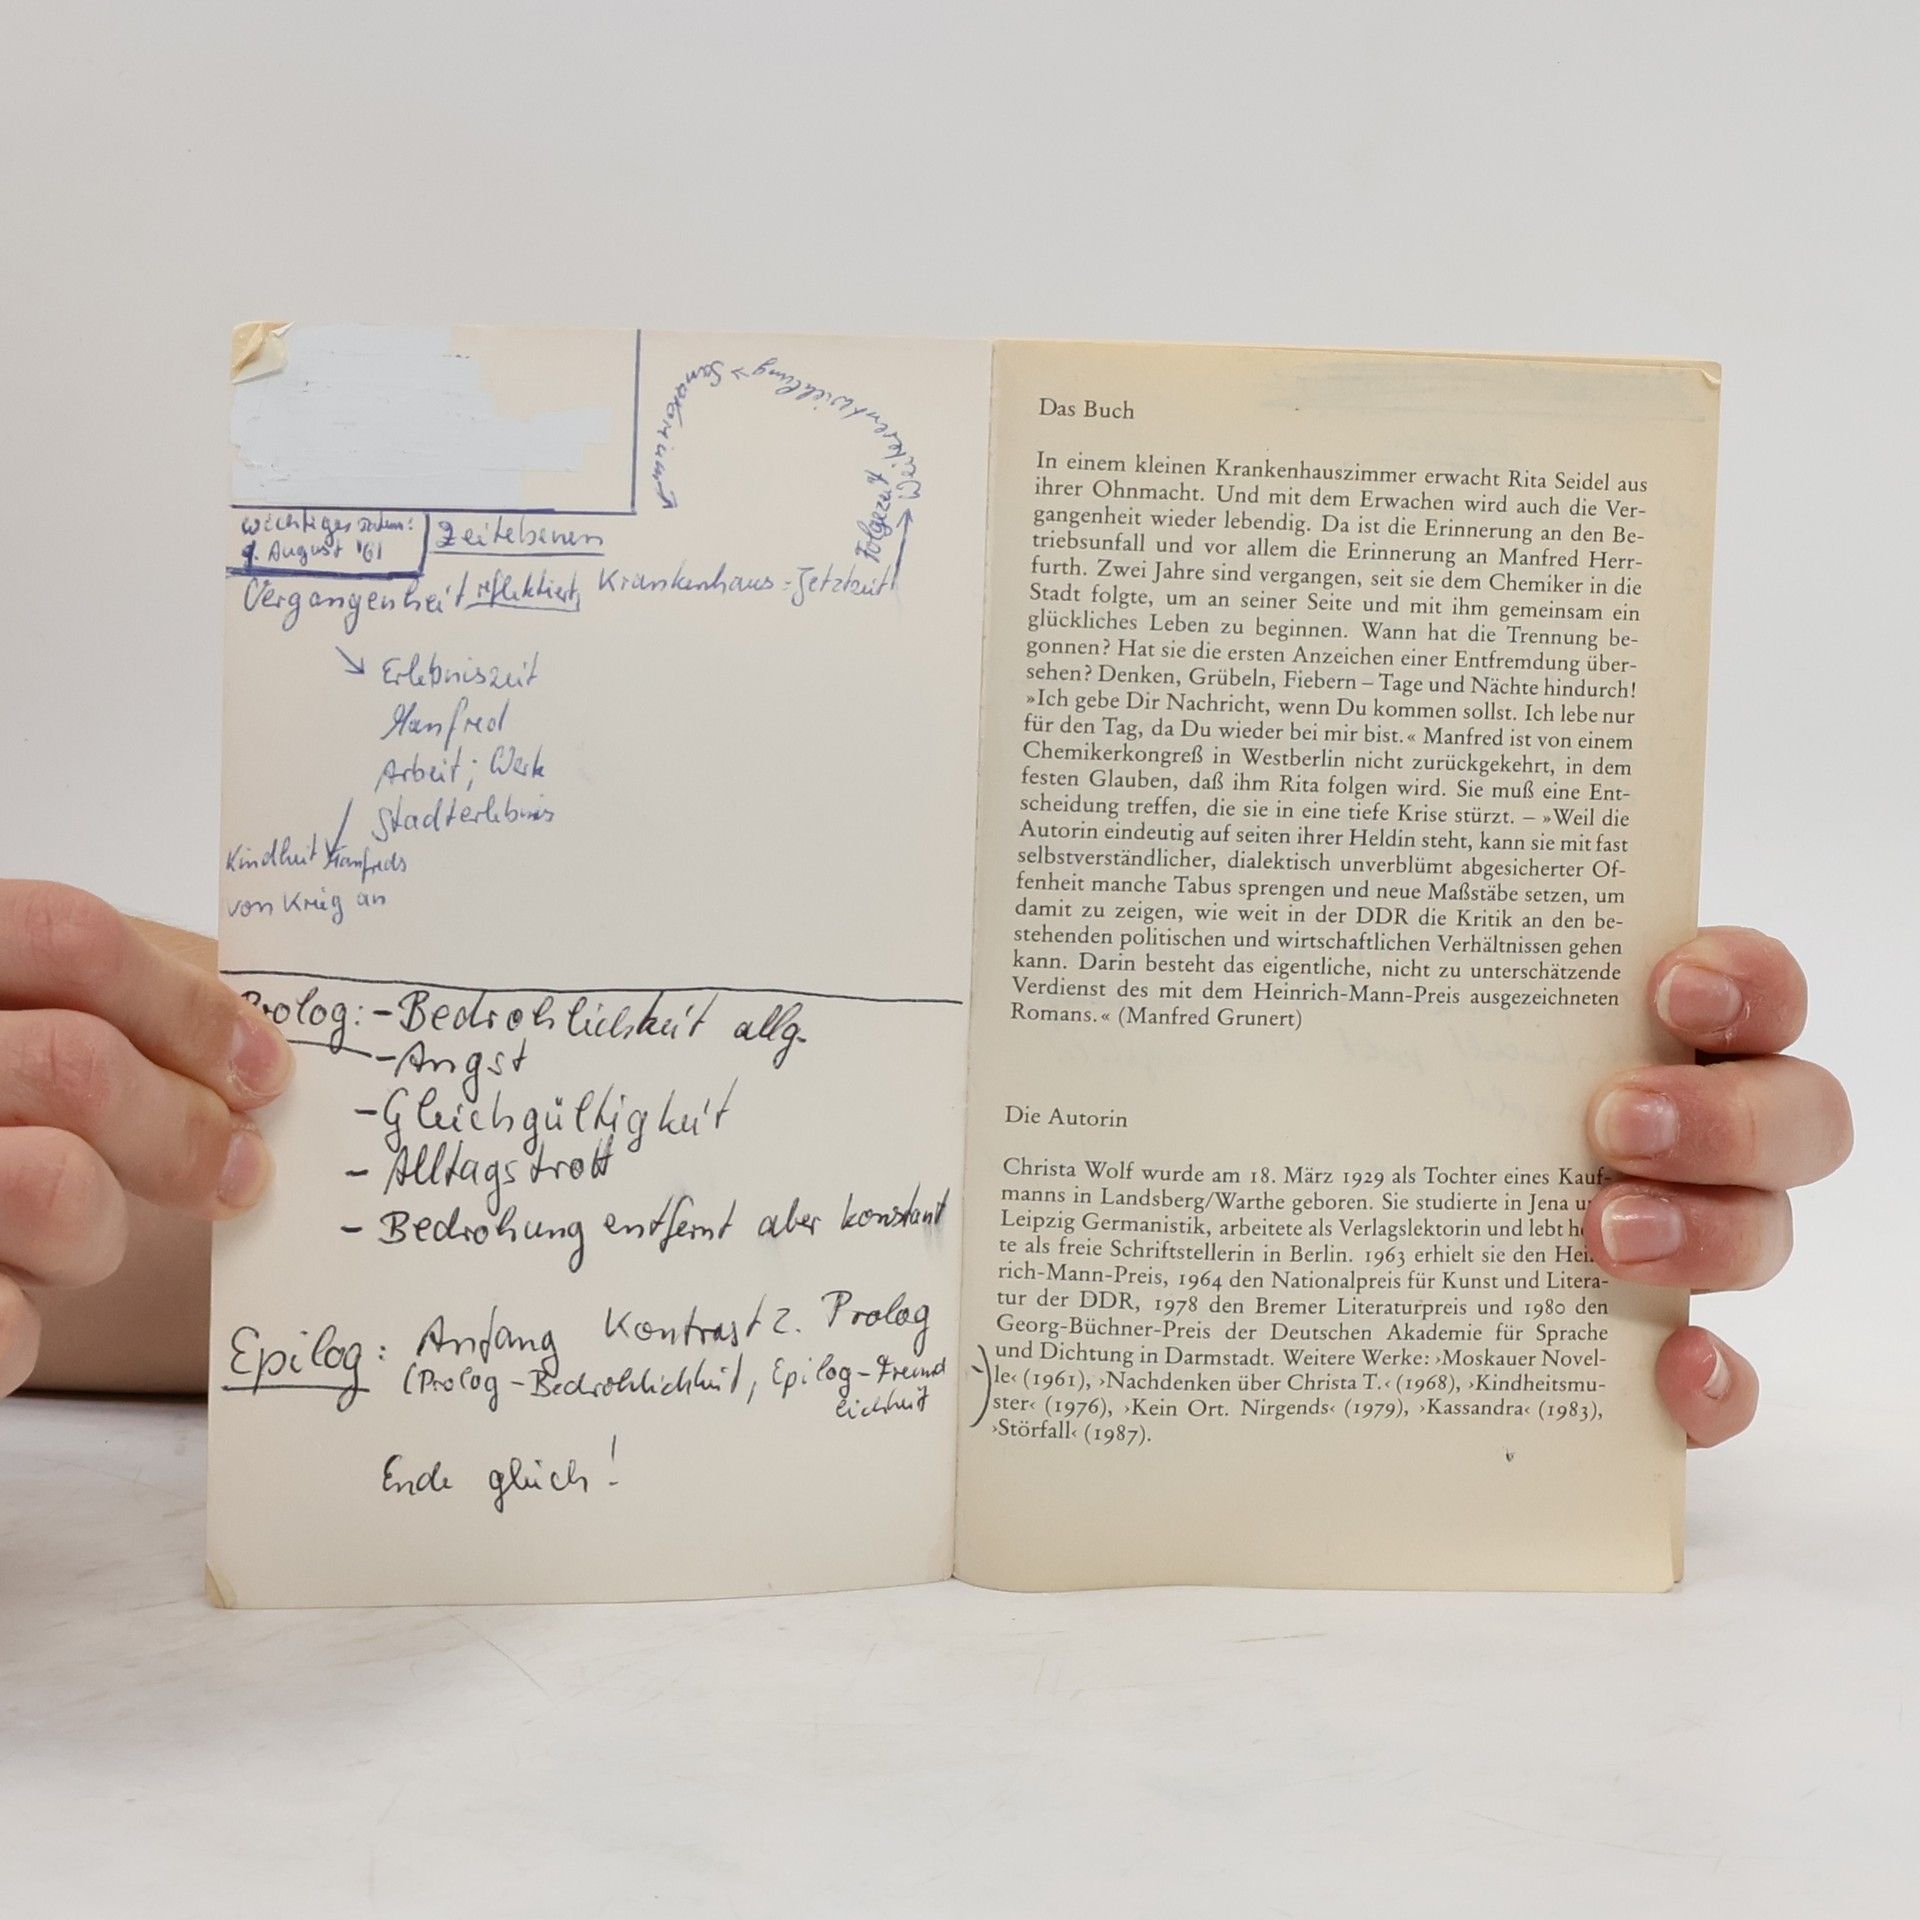 wichtiges Datum:
9. August '61
Zeitebenen
Vergangenheit reflektiert, Krankenhaus = Jetztzeit
Folgezeit
Weiterentwicklung → Sanatorium
↘ Erlebniszeit
Manfred
Arbeit; Werk
Stadterlebnis
Kindheit Manfreds
von Krieg an
Prolog: - Bedrohlichkeit allg.
- Angst
- Gleichgültigkeit
- Alltagstrott
- Bedrohung entfernt aber konstant
Epilog: Anfang Kontrast z. Prolog
(Prolog - Bedrohlichkeit, Epilog - Freund
lichkeit
Ende gleich!
Das Buch
In einem kleinen Krankenhauszimmer erwacht Rita Seidel aus
ihrer Ohnmacht. Und mit dem Erwachen wird auch die Ver-
gangenheit wieder lebendig. Da ist die Erinnerung an den Be-
triebsunfall und vor allem die Erinnerung an Manfred Herr-
furth. Zwei Jahre sind vergangen, seit sie dem Chemiker in die
Stadt folgte, um an seiner Seite und mit ihm gemeinsam ein
glückliches Leben zu beginnen. Wann hat die Trennung be-
gonnen? Hat sie die ersten Anzeichen einer Entfremdung über-
sehen? Denken, Grübeln, Fiebern – Tage und Nächte hindurch!
»Ich gebe Dir Nachricht, wenn Du kommen sollst. Ich lebe nur
für den Tag, da Du wieder bei mir bist.« Manfred ist von einem
Chemikerkongreß in Westberlin nicht zurückgekehrt, in dem
festen Glauben, daß ihm Rita folgen wird. Sie muß eine Ent-
scheidung treffen, die sie in eine tiefe Krise stürzt. – »Weil die
Autorin eindeutig auf seiten ihrer Heldin steht, kann sie mit fast
selbstverständlicher, dialektisch unverblümt abgesicherter Of-
fenheit manche Tabus sprengen und neue Maßstäbe setzen, um
damit zu zeigen, wie weit in der DDR die Kritik an den be-
stehenden politischen und wirtschaftlichen Verhältnissen gehen
kann. Darin besteht das eigentliche, nicht zu unterschätzende
Verdienst des mit dem Heinrich-Mann-Preis ausgezeichneten
Romans.« (Manfred Grunert)
Die Autorin
Christa Wolf wurde am 18. März 1929 als Tochter eines Kauf-
manns in Landsberg/Warthe geboren. Sie studierte in Jena u
Leipzig Germanistik, arbeitete als Verlagslektorin und lebt h
te als freie Schriftstellerin in Berlin. 1963 erhielt sie den Hein-
rich-Mann-Preis, 1964 den Nationalpreis für Kunst und Litera-
tur der DDR, 1978 den Bremer Literaturpreis und 1980 den
Georg-Büchner-Preis der Deutschen Akademie für Sprache
und Dichtung in Darmstadt. Weitere Werke: ›Moskauer Novel-
le‹ (1961), ›Nachdenken über Christa T.‹ (1968), ›Kindheitsmu-
ster‹ (1976), ›Kein Ort. Nirgends‹ (1979), ›Kassandra‹ (1983),
›Störfall‹ (1987).